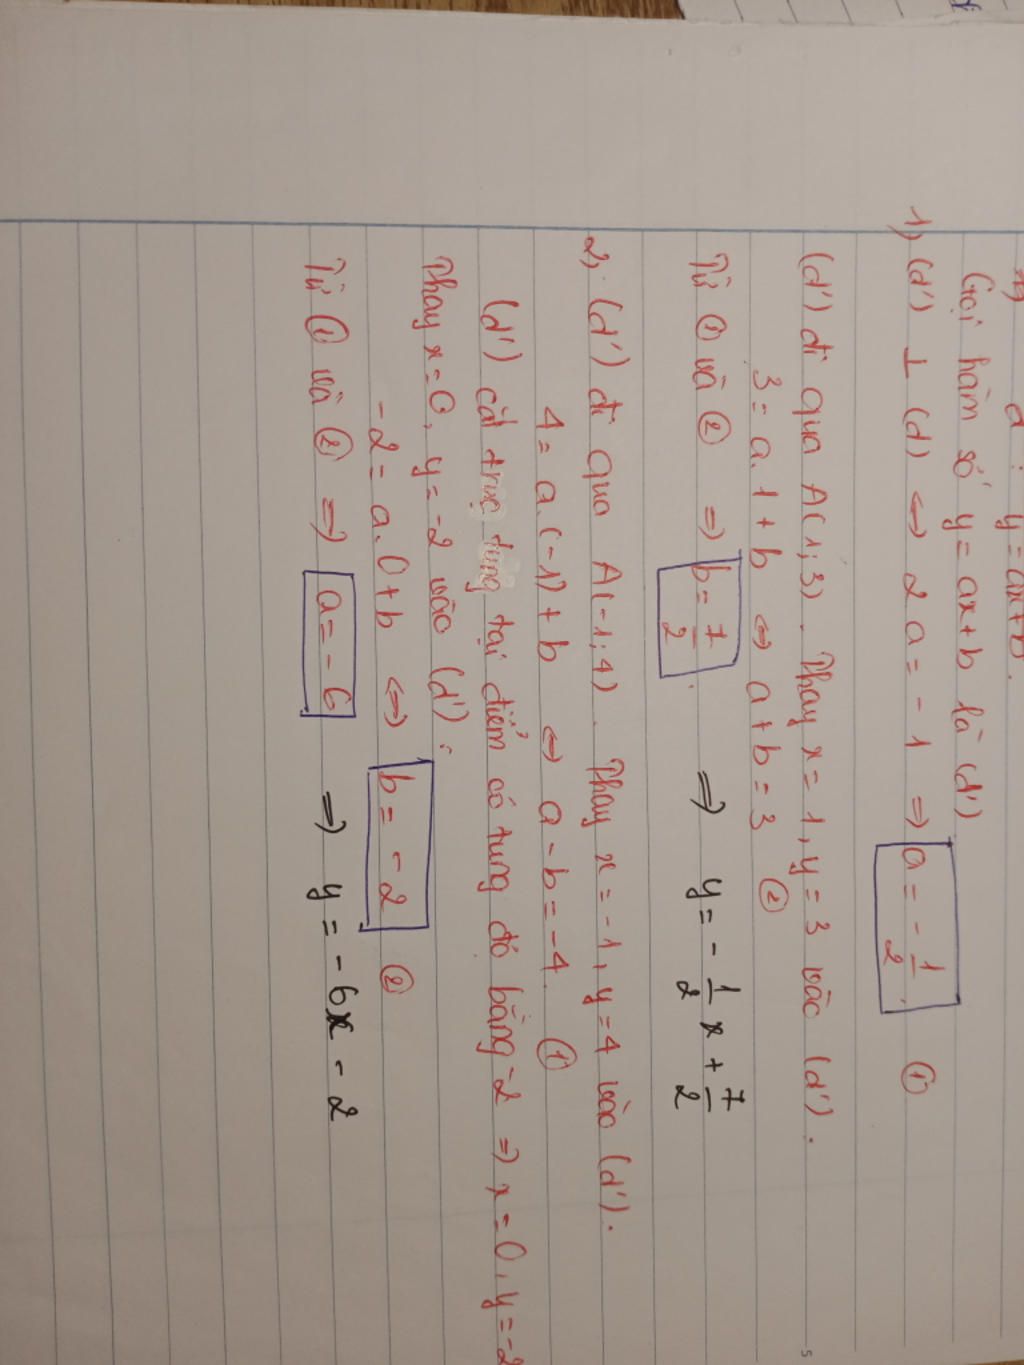 d : y=ax+b.
Gọi hàm số y=ax+b là (d')
1) (d') ⊥ (d) ⇔ 2a=-1 ⇒ a=-1/2. ①
(d') đi qua A(1;3). Thay x=1, y=3 vào (d').
3=a.1+b ⇔ a+b=3 ②
Từ ① và ② ⇒ b=7/2. ⇒ y=-1/2 x+7/2
2, (d') đi qua A(-1;4). Thay x=-1, y=4 vào (d').
4=a.(-1)+b ⇔ a-b=-4. ①
(d') cắt trục tung tại điểm có tung độ bằng -2 ⇒ x=0, y=-2
Thay x=0, y=-2 vào (d'):
-2=a.0+b ⇔ b=-2 ②
Từ ① và ② ⇒ a=-6 ⇒ y=-6x-2